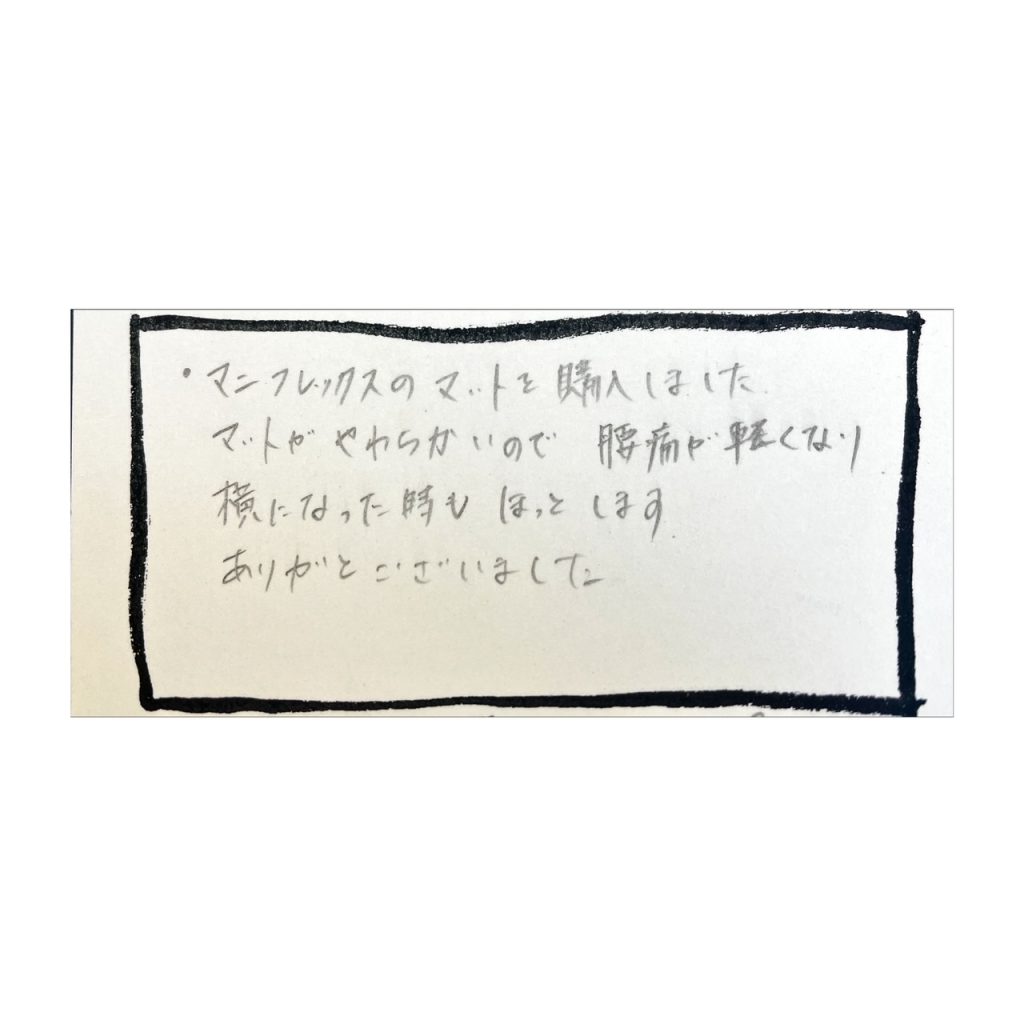 ・マニフレックスのマットを購入しました.
マットがやわらかいので 腰痛が軽くなり
横になった時も ほっと します.
ありがとございました